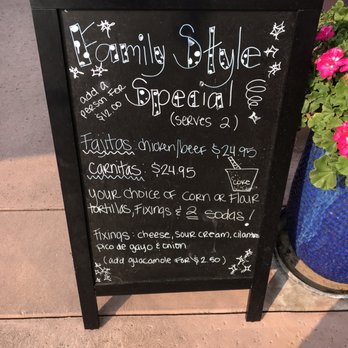 Family Style
Special
(serves 2)
add a
person for
$12.00
Fajitas chicken/beef $24.95
Carnitas: $24.95
COKE
your choice of corn or Flour
tortillas, Fixings & 2 sodas!
Fixings: cheese, sour cream, cilantro
pico de gayo & onion
(add guacamole for $2.50)